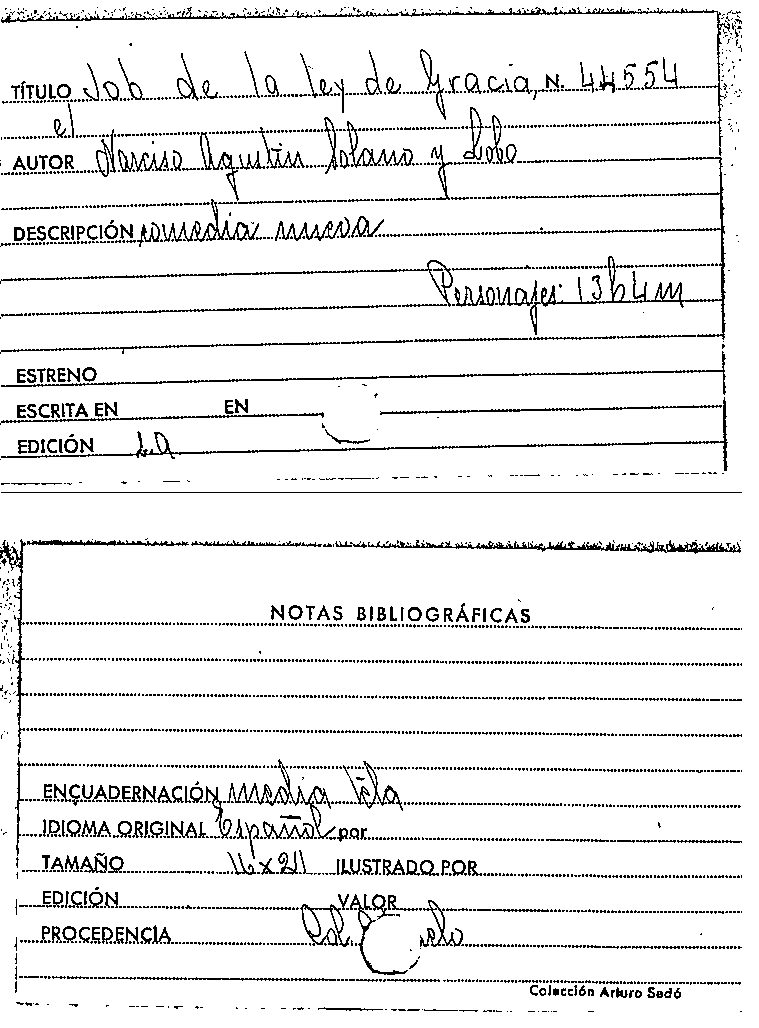 TÍTULO Job de la ley de Gracia, N. 44554
el
AUTOR Narciso Agustín Solano y Lobo
DESCRIPCIÓN comedia nueva
Personajes: 13h4m
ESTRENO
ESCRITA EN EN
EDICIÓN
NOTAS BIBLIOGRÁFICAS
ENCUADERNACIÓN media tela
IDIOMA ORIGINAL Español por
TAMAÑO 16x21 ILUSTRADO POR
EDICIÓN VALOR
PROCEDENCIA Col.
Colección Arturo Sedó